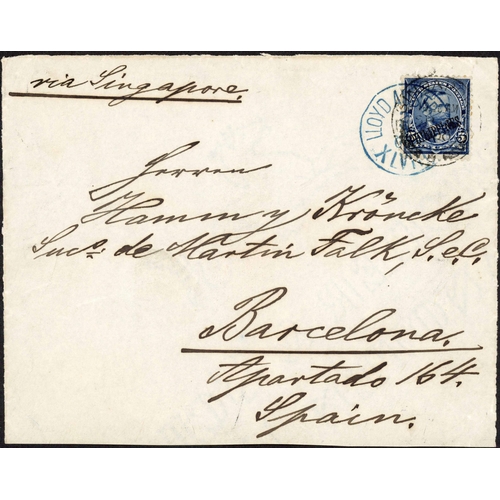 via Singapore.
LLOYD
5
Herren
Hamm y Kröncke
Suco. de Martin Falk, S.eC.
Barcelona.
Apartado 164.
Spain.